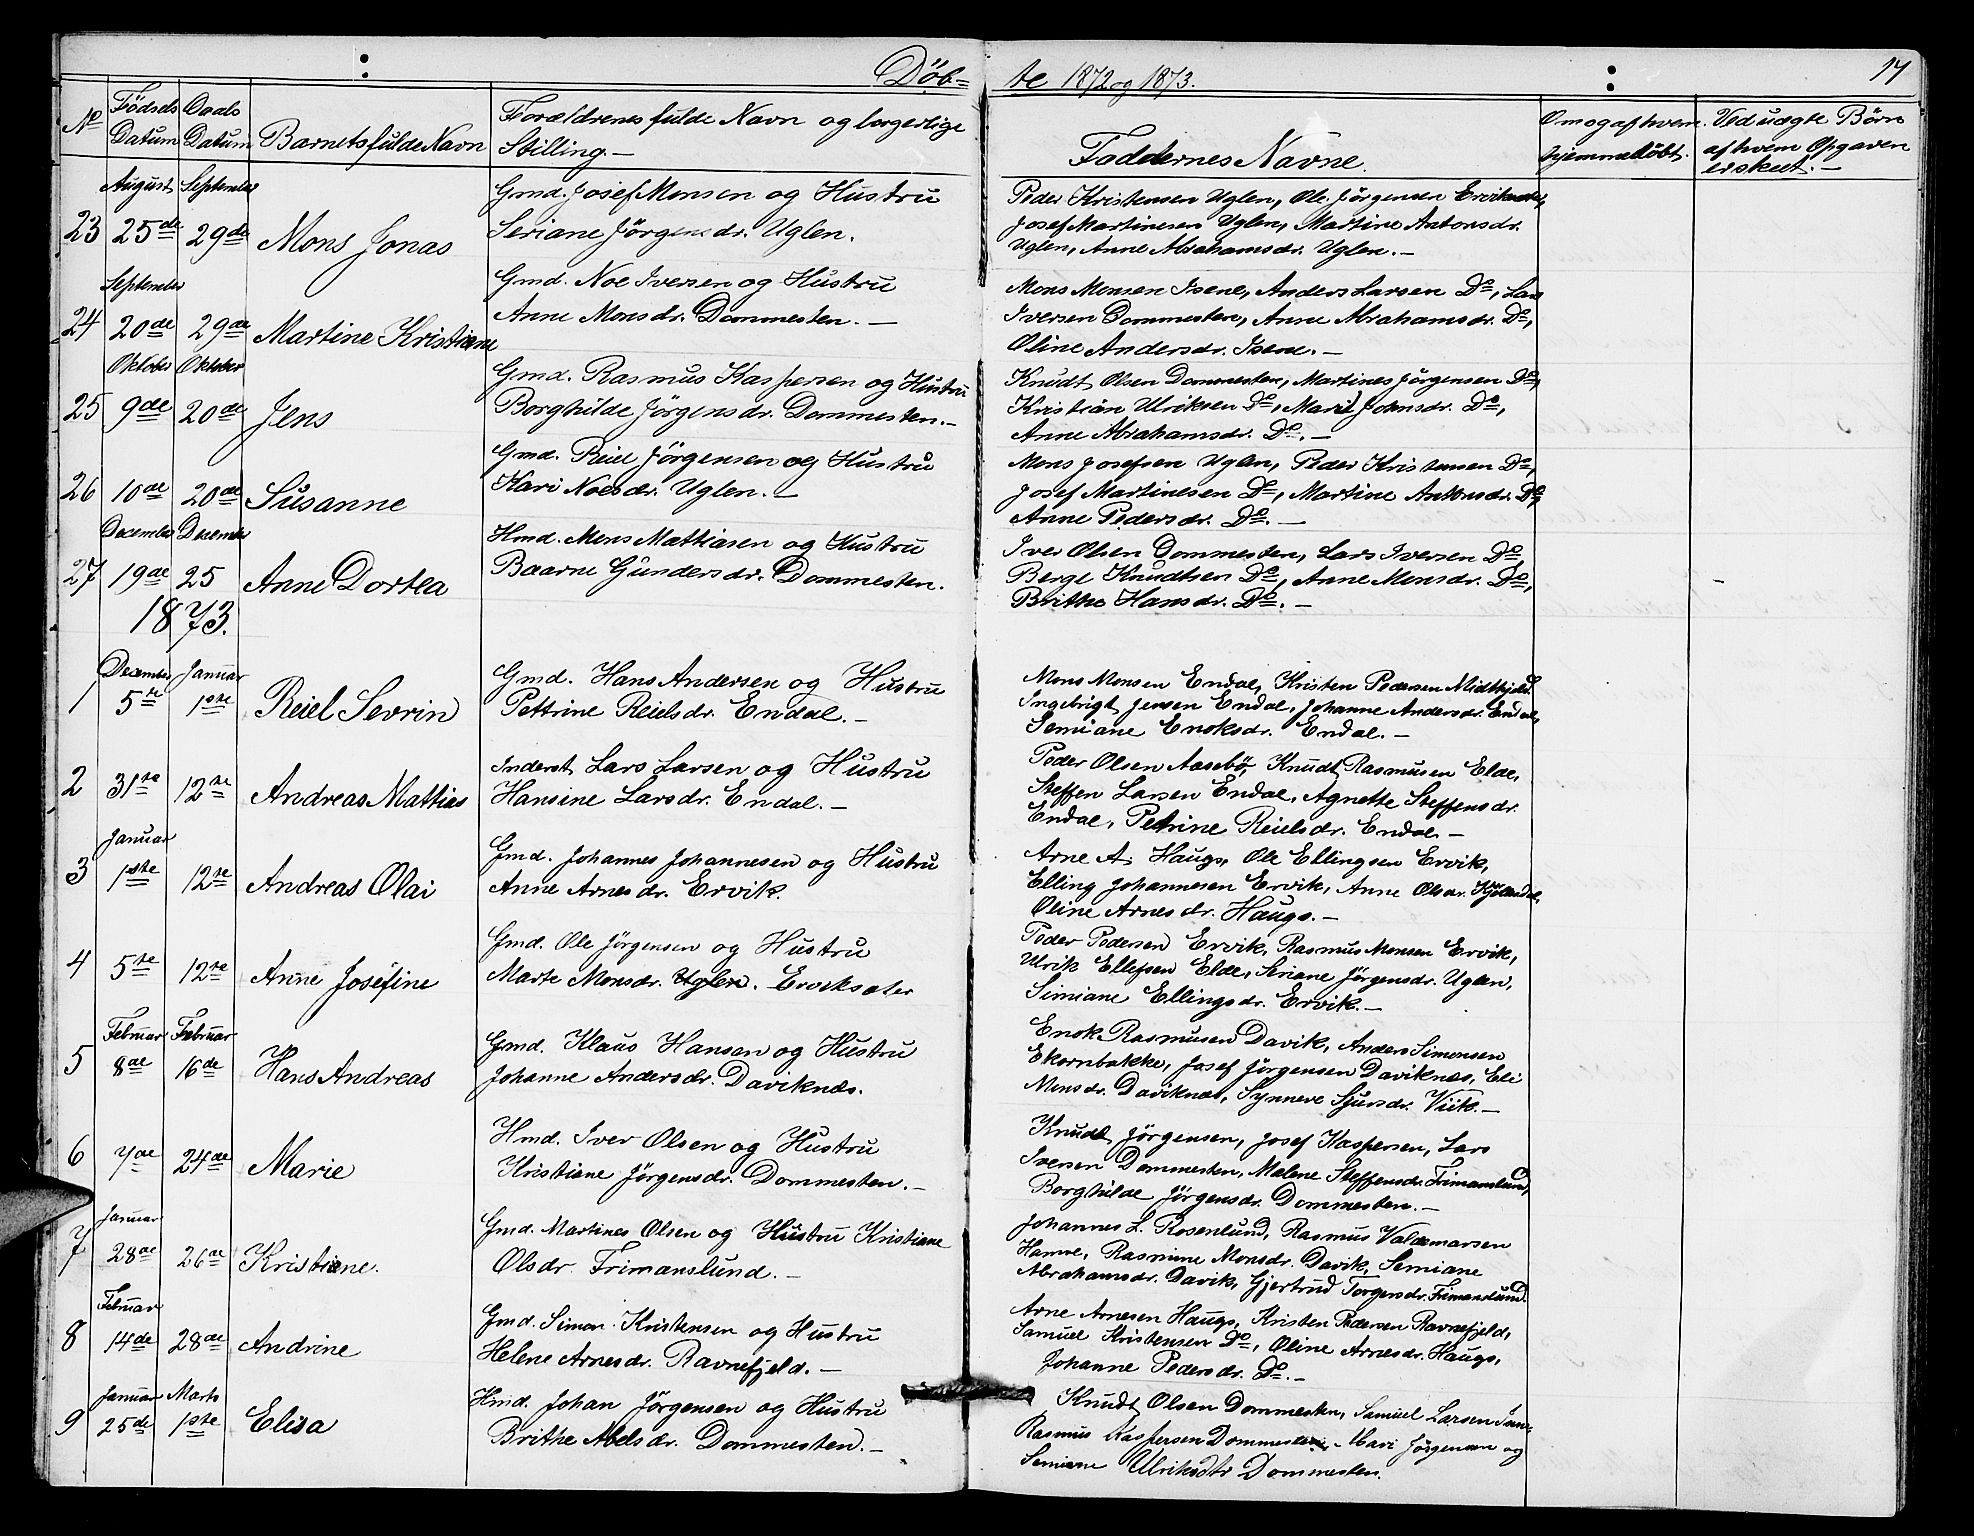 Döb-
te 1872 og 1873.
17
No
Födsels Datum
Daabs Datum
Barnets fulde Navn
Forældrenes fulde Navn og borgerlige Stilling.-
Faddernes Navne.
Om og af hvem hjemmedöbt.
Ved uægte Börn af hvem Opgaven er skeet.-
August September
23 25de 29de Mons Jonas
Gmd. Josef Monsen og Hustru
Seriane Jörgensdr. Uglen.
Peder Kristensen Uglen, Ole Jörgensen Erviksæter,
Josef Martinesen Uglen, Martine Antonsdr.
Uglen, Anne Abrahamsdr. Uglen.-
September
24 20de 29de Martine Kristiane
Gmd. Noe Iversen og Hustru
Anne Monsdr. Dommesten.-
Mons Monsen Isene, Anders Larsen Do, Lars
Iversen Dommesten, Anne Abrahamsdr. Do,
Oline Andersdr. Isene.-
Oktober Oktober
25 9de 20de Jens
Gmd. Rasmus Kaspersen og Hustru
Borghilde Jörgensdr. Dommesten.-
Knudt Olsen Dommesten, Martines Jörgensen Do,
Kristian Ulriksen Do, Marit Johnsdr. Do,
Anne Abrahamsdr. Do.-
26 10de 20de Susanne
Gmd. Reiel Jörgensen og Hustru
Kari Noesdr. Uglen.-
Mons Josefsen Uglen, Peder Kristensen Do,
Josef Martinesen Do, Martine Antonsdr. Do,
Anne Pedersdr. Do.-
December December
27 19de 25 Anne Dortea
Hmd. Mons Mattiasen og Hustru
Baarne Gundersdr. Dommesten.
Iver Olsen Dommesten, Lars Iversen Do,
Berge Knudtsen Do, Anne Monsdr. Do,
Brithe Hansdr. Do.-
1873.
December Januar
1 5te 1ste Reiel Sevrin
Gmd. Hans Andersen og Hustru
Pettrine Reielsdr. Endal.-
Mons Monsen Endal, Kristen Pedersen Midthjeld.
Ingebrigt Jensen Endal, Johanne Andersdr. Endal,
Semiane Enoksdr. Endal.-
2 31te 12te Andreas Mattias
Inderst Lars Larsen og Hustru
Hansine Larsdr. Endal.-
Peder Olsen Aasebö, Knudt Rasmusen Elde,
Steffen Larsen Endal, Agnette Steffensdr.
Endal, Petrine Reielsdr. Endal.-
Januar
3 1ste 12te Andreas Olai
Gmd. Johannes Johannesen og Hustru
Anne Arnesdr. Ervik.
Arne A. Haugs, Ole Ellingsen Ervik,
Elling Johannesen Ervik, Anne Olsdr. Kjölsdal,
Oline Arnesdr. Haugs.-
4 5te 12te Anne Josefine
Gmd. Ole Jörgensen og Hustru
Marte Monsdr. Uglen. Erviksæter
Peder Pedersen Ervik, Rasmus Monsen Ervik,
Ulrik Ellefsen Elde, Seriane Jörgensdr. Uglen,
Simiane Ellingsdr. Ervik.-
Februar Februar
5 8de 16de Hans Andreas
Gmd. Klaus Hansen og Hustru
Johanne Andersdr. Daviknæs.
Enok Rasmusen Davik, Anders Simonsen
Ekornbakke, Josef Jörgensen Daviknæs, Eli
Monsdr. Daviknæs, Synneve Sjursdr. Viik.-
6 7de 24de Marie
Hmd. Iver Olsen og Hustru
Kristiane Jörgensdr. Dommesten.-
Knudt Jörgensen, Josef Kaspersen, Lars
Iversen Dommesten, Malene Steffensdr. Frimanslund,
Borghilde Jörgensdr. Dommesten.-
Januar
7 28de 26de Kristiane.
Gmd. Martines Olsen og Hustru Kristiane
Olsdr Frimanslund.-
Johannes L. Rosenlund, Rasmus Valdemarsen
Hamre, Rasmine Monsdr. Davik, Semiane
Abrahamsdr. Davik, Gjertrud Torgersdr. Frimanslund.
Februar
8 14de 28de Andrine
Gmd. Simon Kristensen og Hustru
Helene Arnesdr. Ravnefjeld.-
Arne Arnesen Haugs, Kristen Pedersen Ravnefjeld,
Samuel Kristensen Do, Oline Arnesdr. Haugs,
Johanne Pedersdr. Do.-
Januar Marts
9 25de 1ste Elisa
Hmd. Johan Jörgensen og Hustru
Brithe Abelsdr. Dommesten.-
Knudt Olsen Dommesten, Samuel Larsen
Rasmus Kaspersen Dommesten, Mari Jörgensen og
Semiane Ulriksdtr Dommesten.